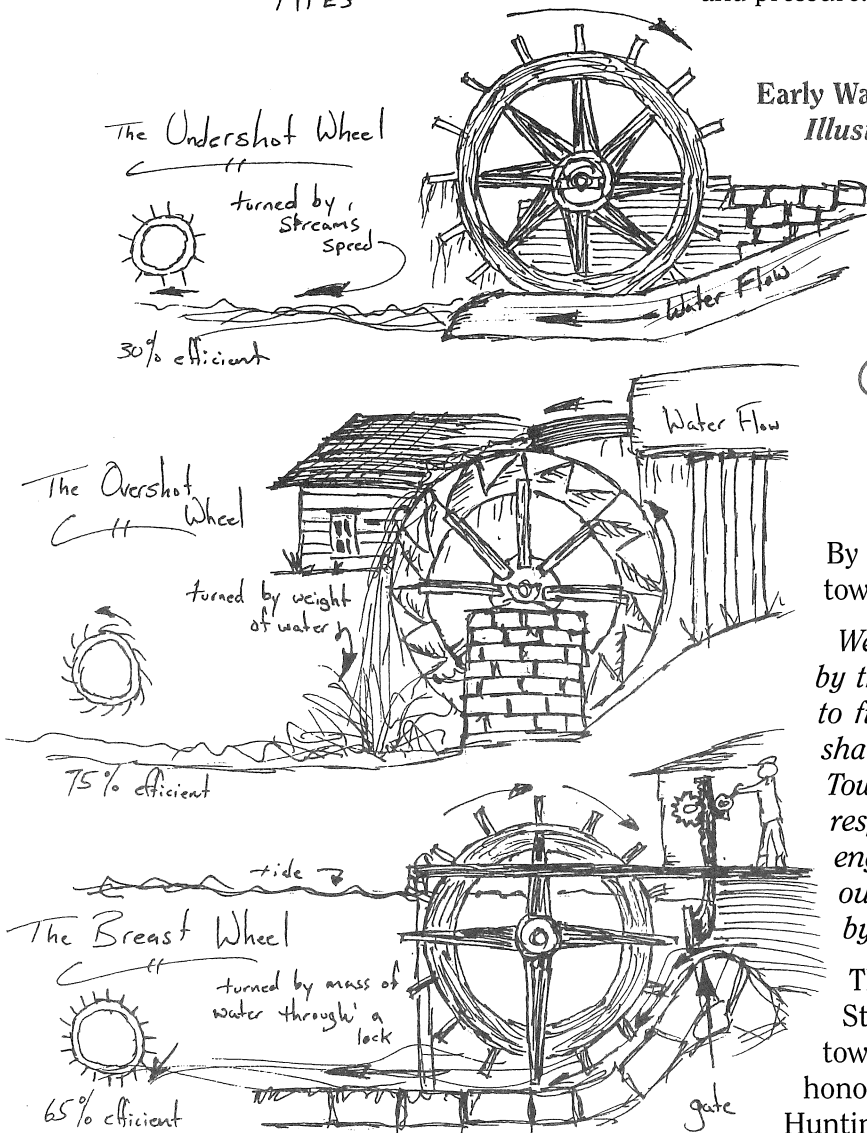 TYPES
and pressure.
Early Wa
Illus
The Undershot Wheel
turned by
Streams
Speed
Water Flow
30% efficient
Water Flow
The Overshot
Wheel
turned by weight
of water
75% efficient
By
tow
We
by t
to f
sha
Tou
res
eng
ou
by
tide
The Breast Wheel
turned by mass of
water through a
lock
65% efficient
gate
T
St
tow
hono
Huntin